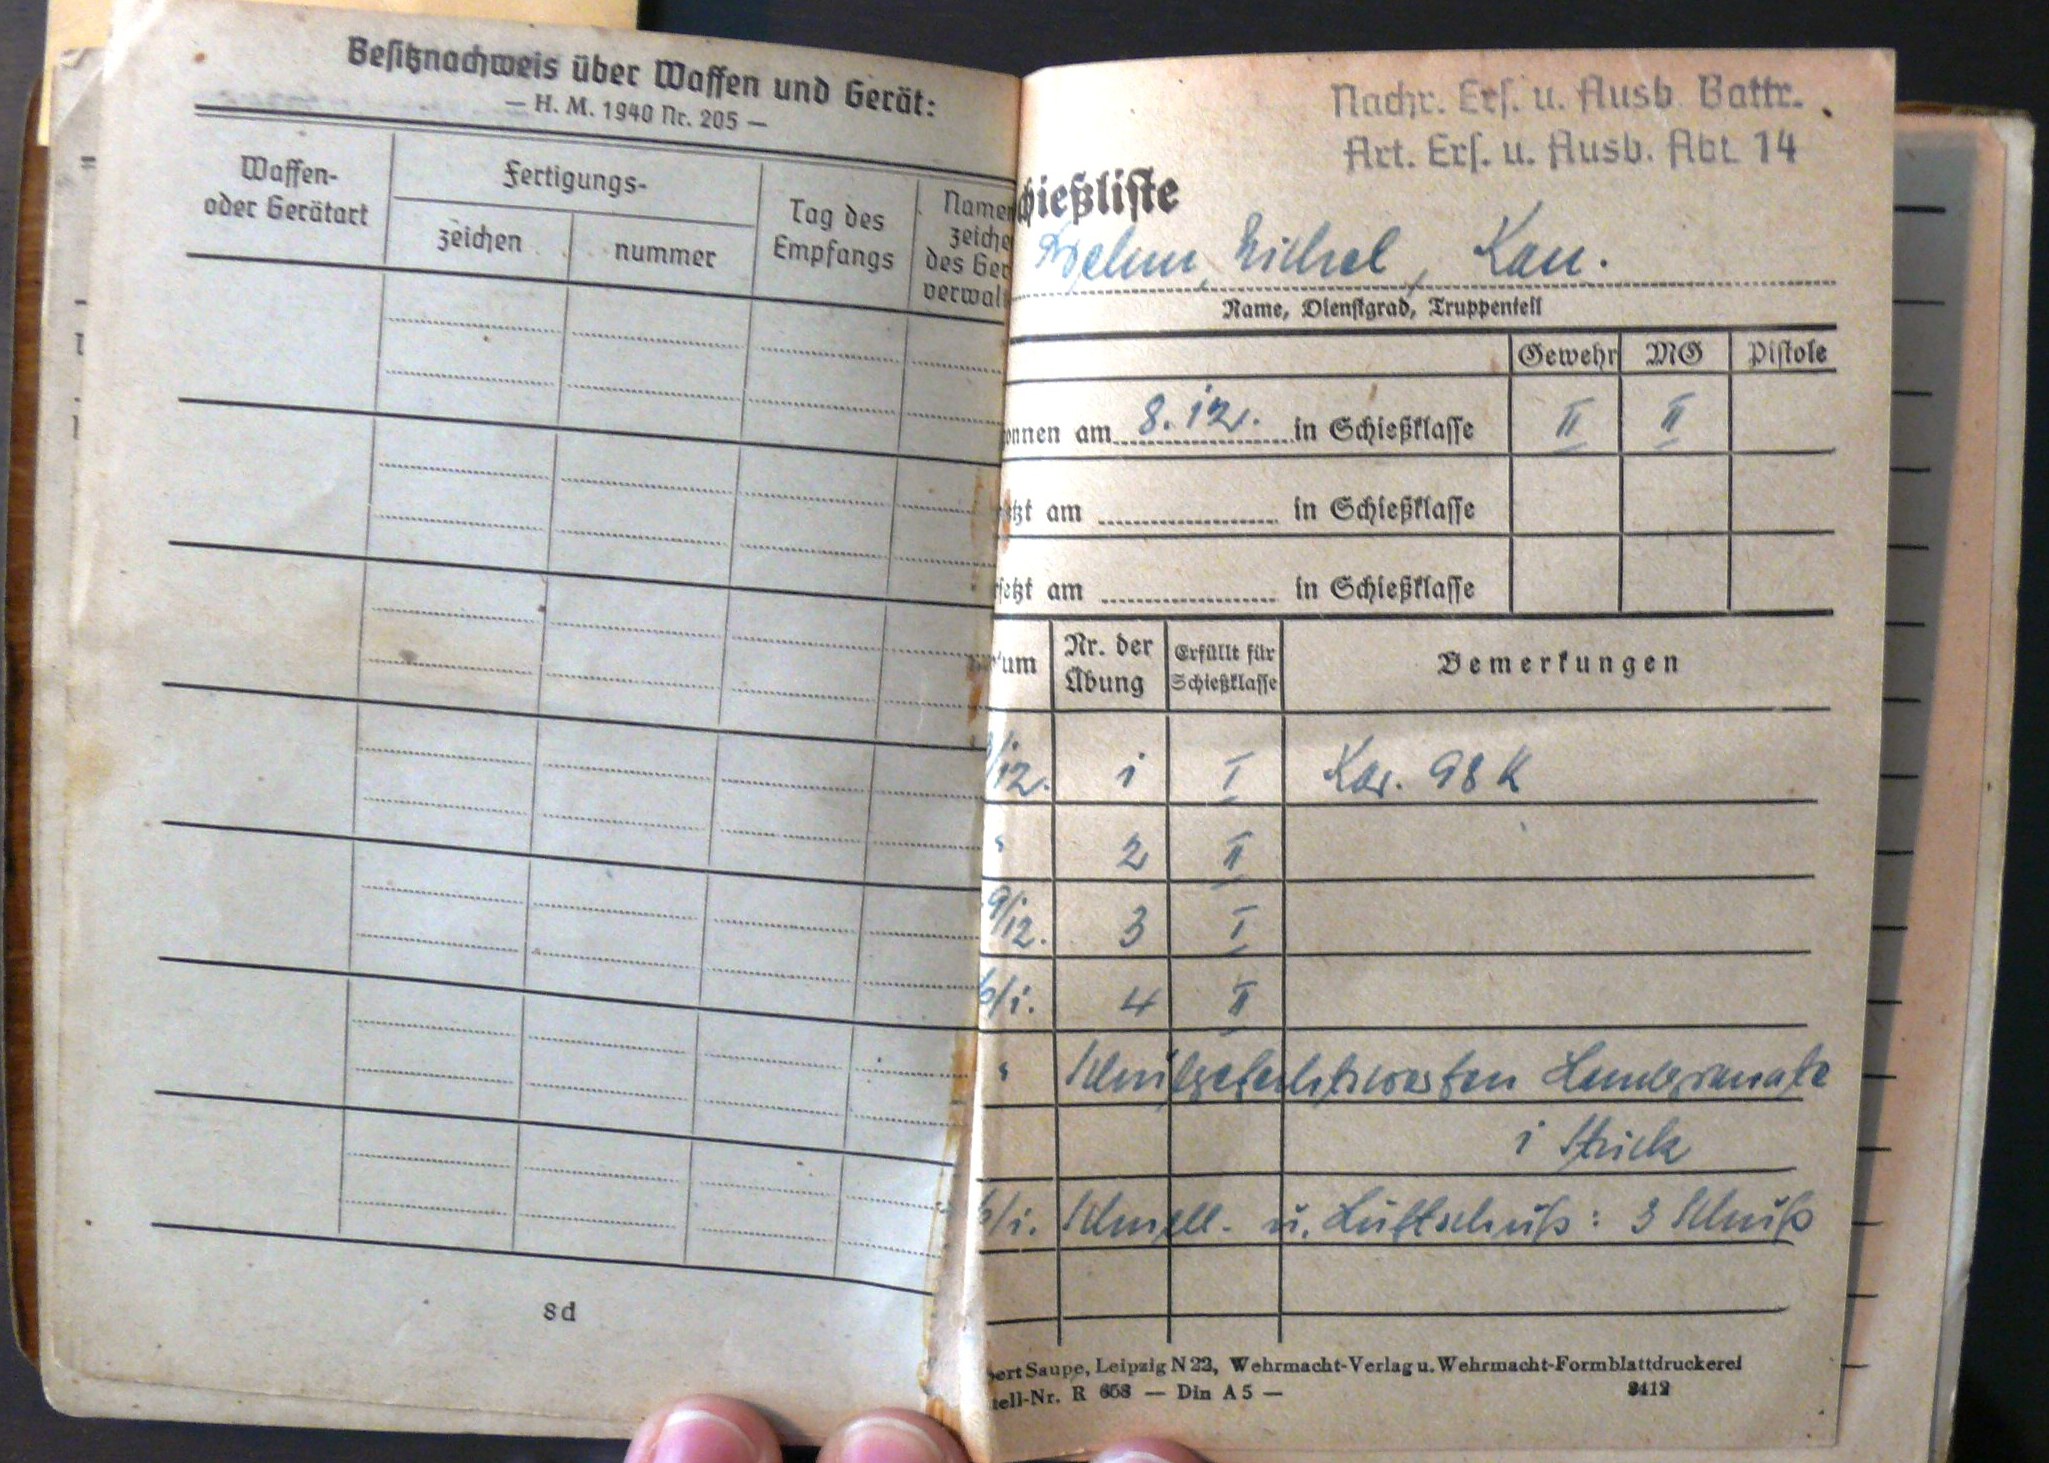 Besitznachweis über Waffen und Gerät:
— H. M. 1940 Nr. 205 —
Waffen-
oder Gerätart
Fertigungs-
zeichen
nummer
Tag des
Empfangs
Namen
zeiche
des Ger
verwal
8d
Nachr. Ers. u. Ausb. Battr.
Art. Ers. u. Ausb. Abt. 14
chießliste
Kan.
Name, Dienstgrad, Truppenteil
Gewehr
MG
Pistole
onnen am 8. 12. in Schießklasse II II
etzt am in Schießklasse
rsetzt am in Schießklasse
um
Nr. der
Übung
Erfüllt für
Schießklasse
Bemerkungen
/12. 1 I Kar. 98 K
" 2 II
9/12. 3 I
6/1. 4 II
" Schulgefechtswerfen Handgranate
1 Stück
6/1. Schnell- u. Luftschuß: 3 Schuß
bert Saupe, Leipzig N 22, Wehrmacht-Verlag u. Wehrmacht-Formblattdruckerei
tell-Nr. R 653 — Din A 5 —
3412